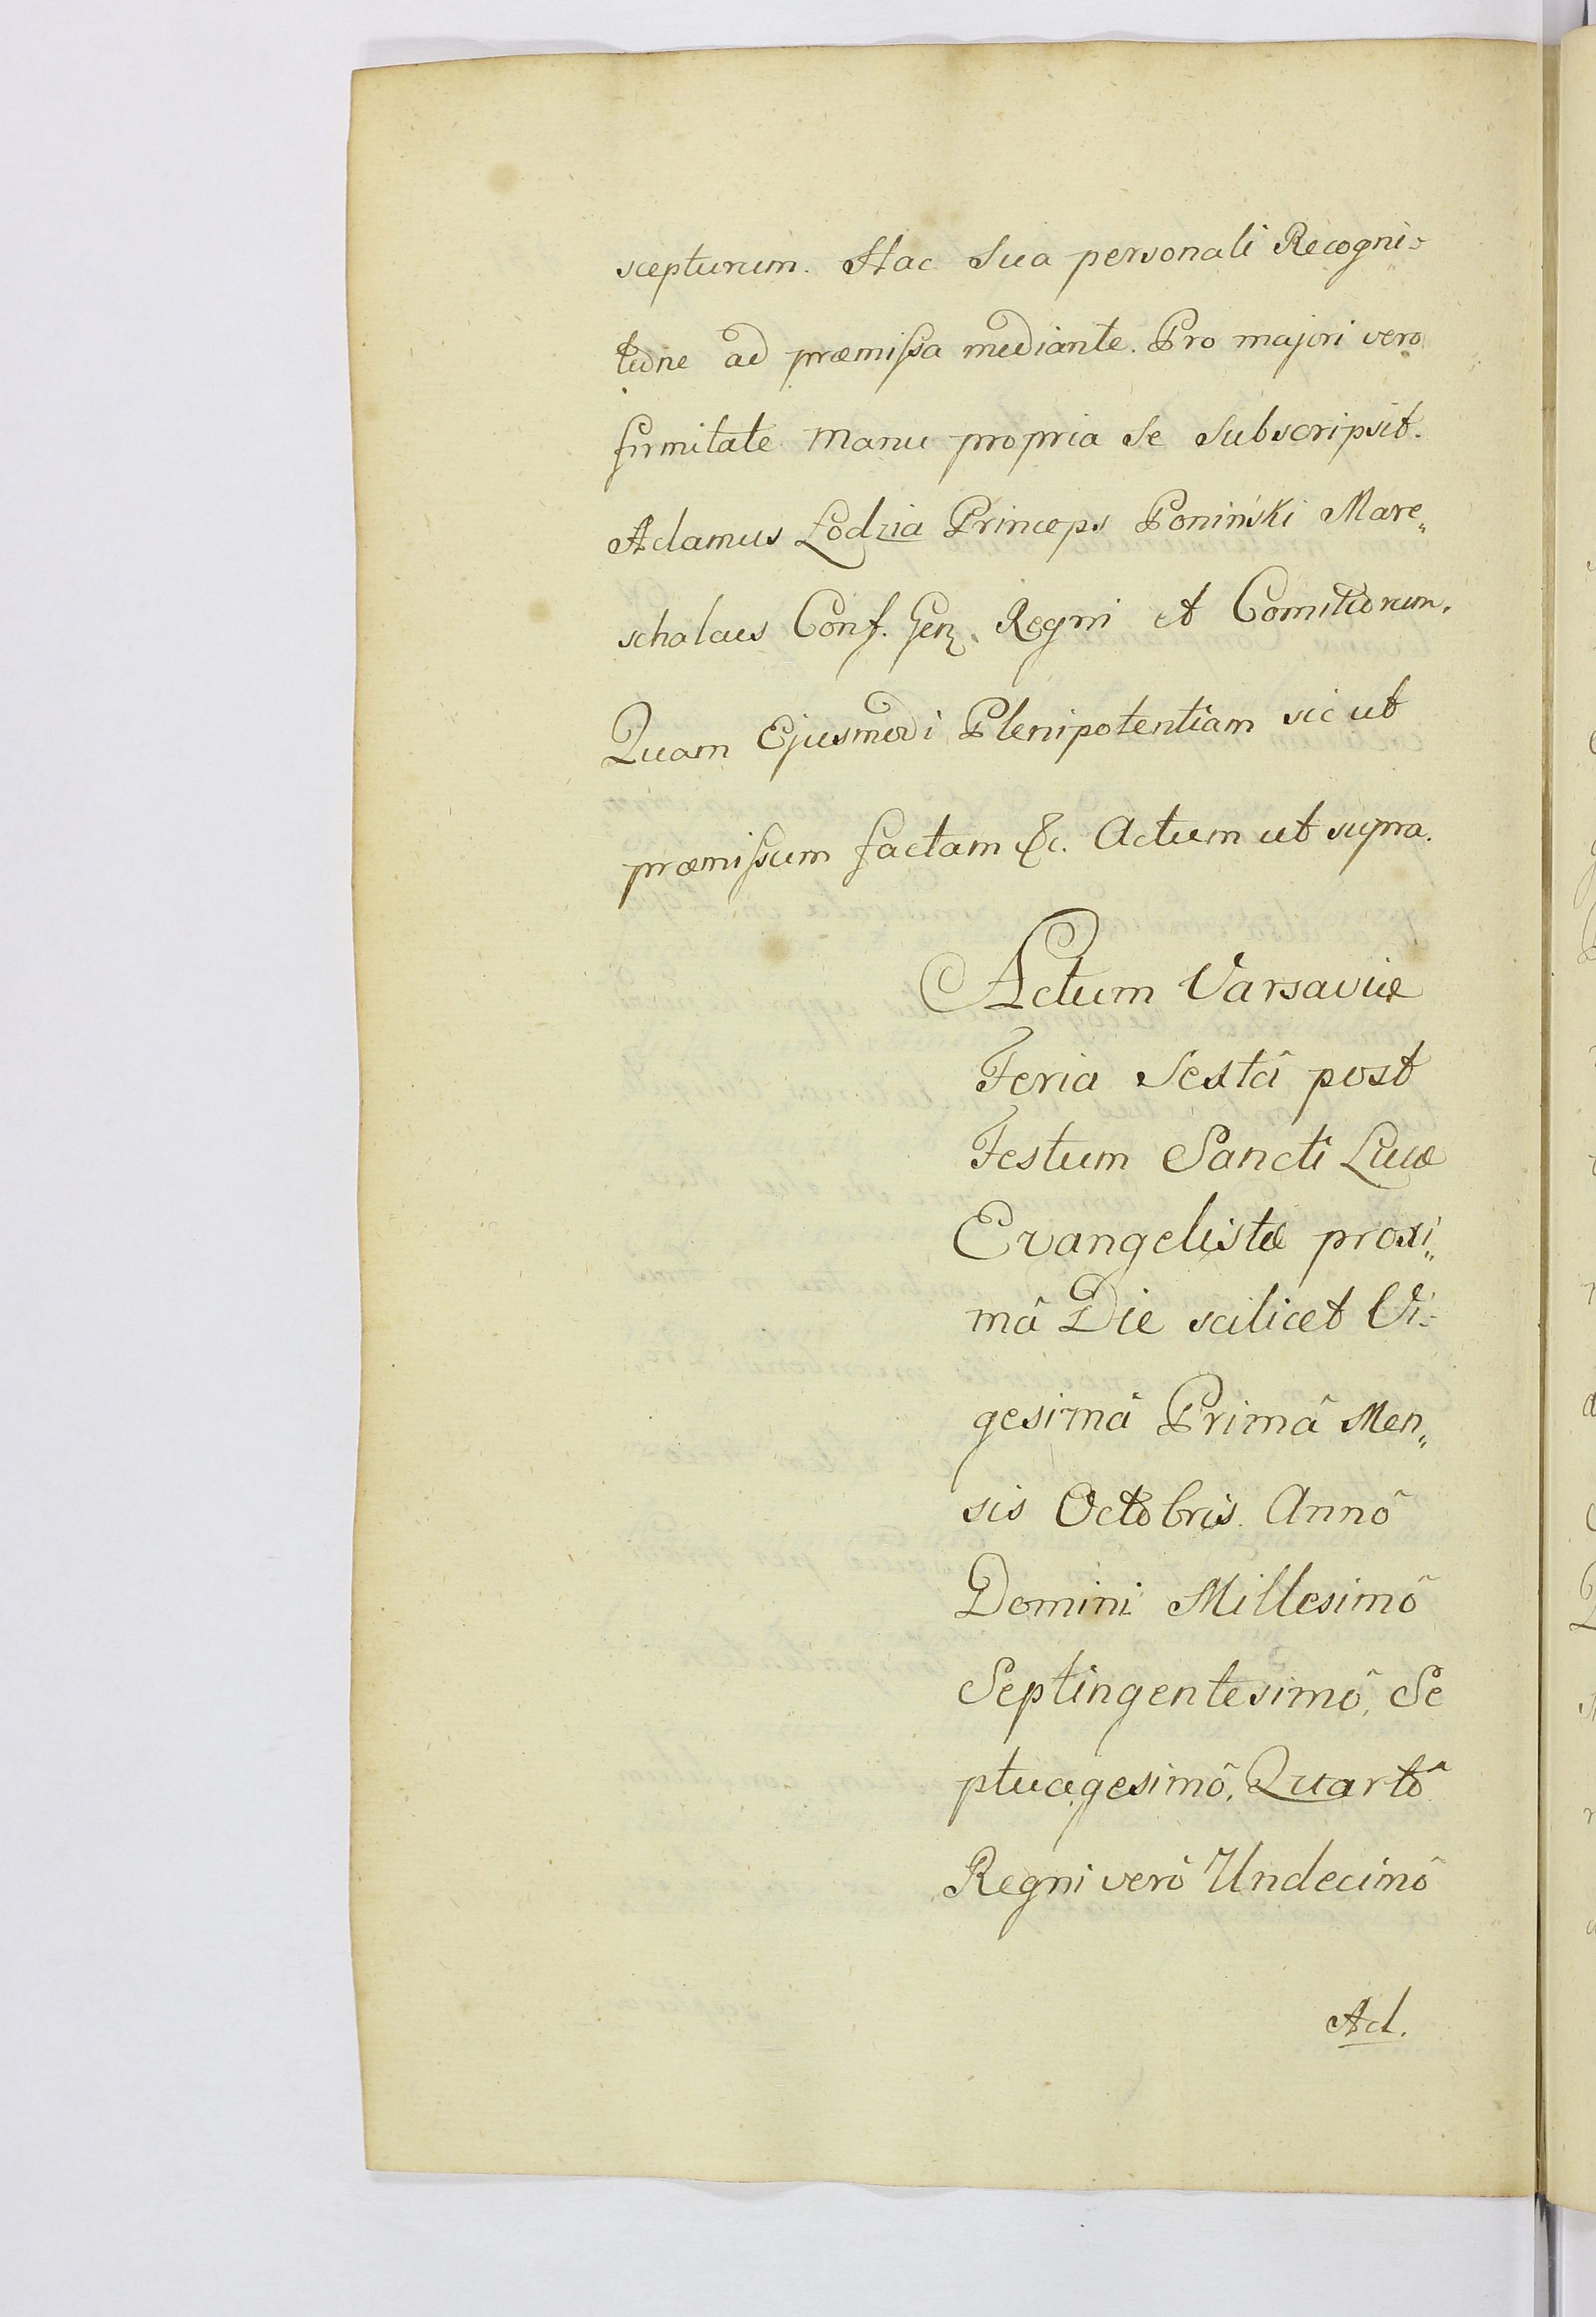 scepturum. Hac sua personali Recogni-
tione ad præmissa mediante. Pro majori vero
firmitate manu propria se subscripsit.
Adamus Łodzia Princeps Poniński Mare„
schalcus Conf. Gen. Regni et Comitiorum.
Quam Ejusmodi Plenipotentiam sic ut
præmissum factam &c. Actum ut supra.
Actum Varsaviæ
Feria Sextâ post
Festum Sancti Lucæ
Evangelistæ proxi„
mâ Die scilicet Vi-
gesimâ Primâ Men„
sis Octobris Annô
Domini Millesimô
Septingentesimô, Se
ptuagesimô, Quartô
Regni verô Undecimô
Ad.